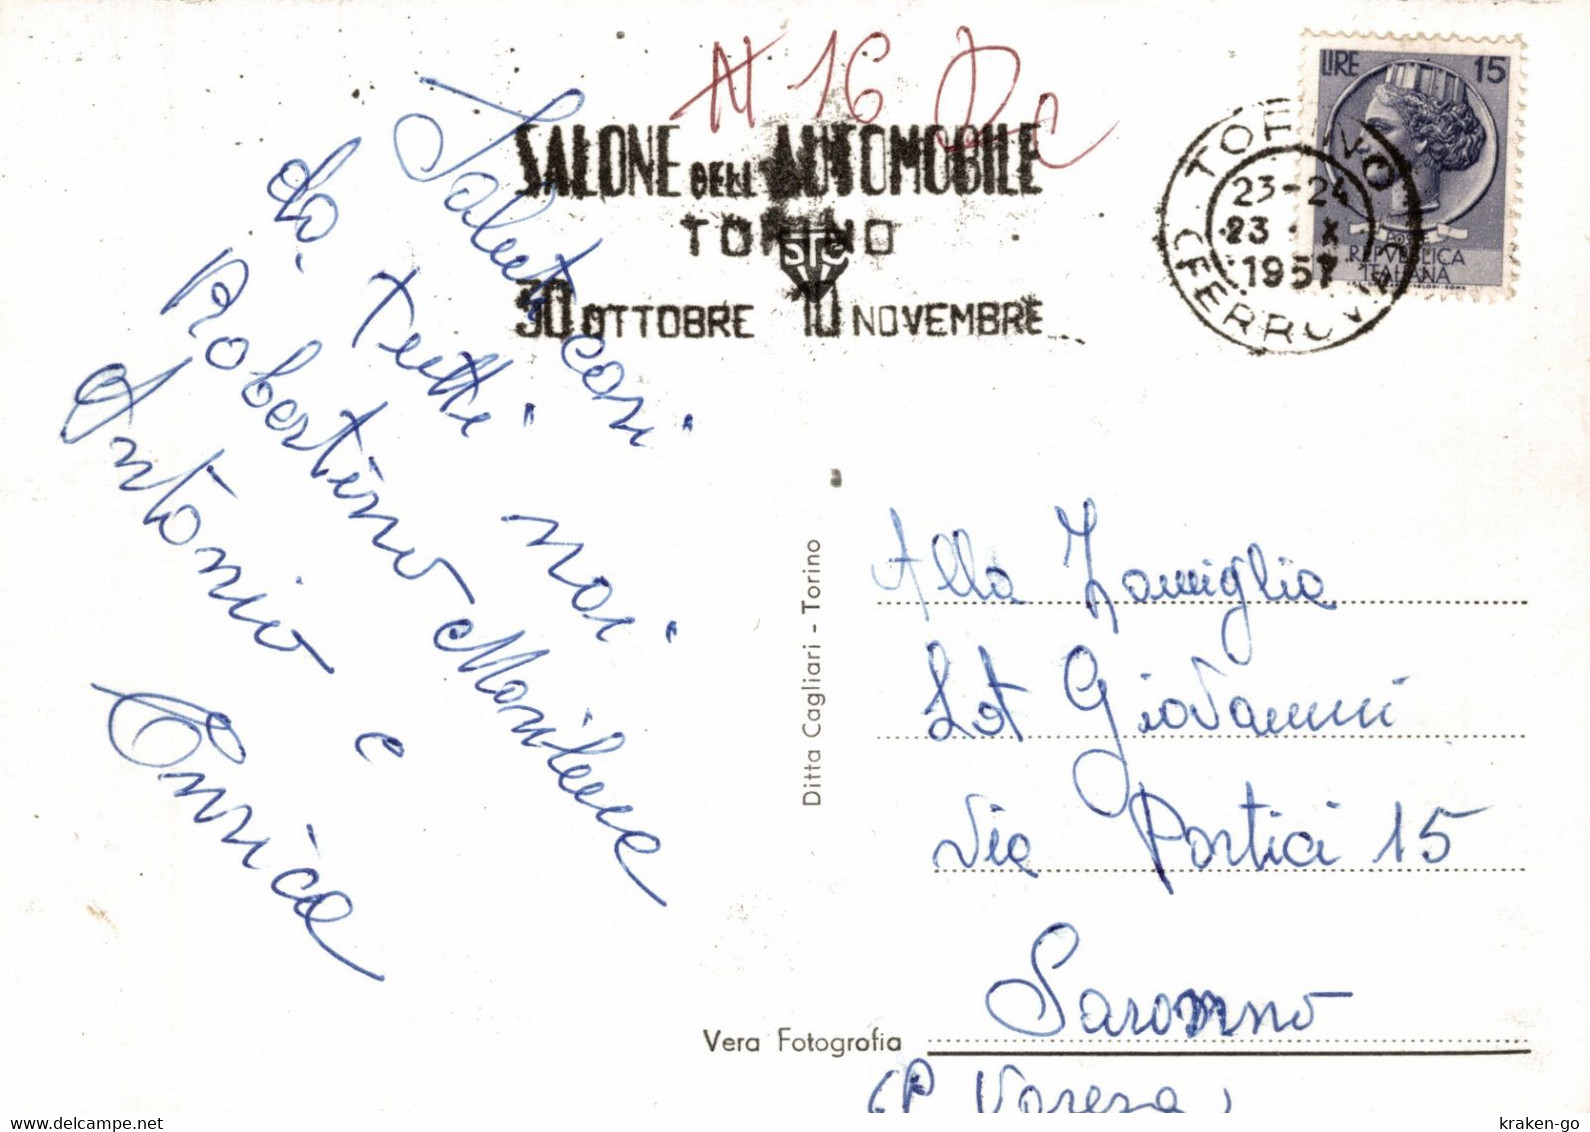 N 16
SALONE DELL'AUTOMOBILE
TORINO
STC
30 OTTOBRE 10 NOVEMBRE
TORINO
23-24
23 · X
1957
FERROVIA
LIRE 15
POSTE
REPVBBLICA
ITALIANA
Saluti cari
da tutti noi
Robertino Marilena
Antonio e
Enrica
Ditta Cagliari - Torino
Alla Famiglia
Lot Giovanni
Via Portici 15
Saronno
(P Varese)
Vera Fotografia
kraken-go